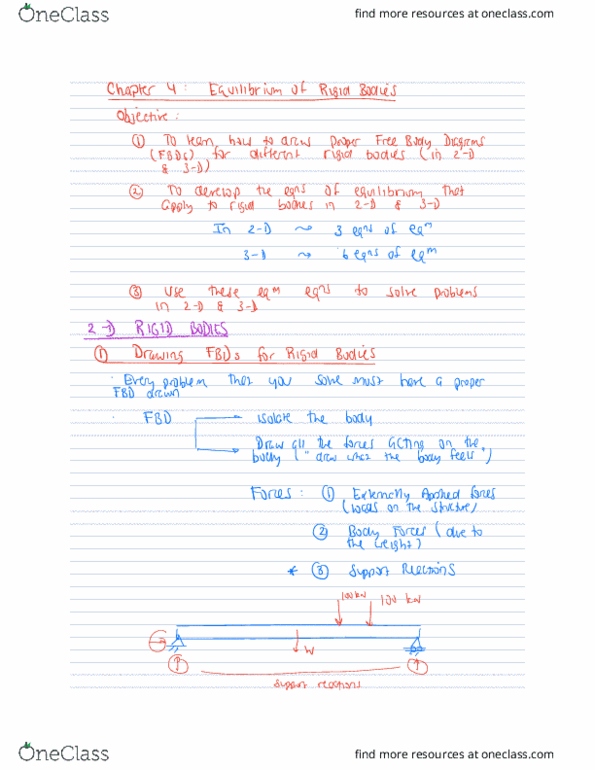 OneClass
find more resources at oneclass.com
Chapter 4: Equilibrium of Rigid Bodies
Objective:
① To learn how to draw proper Free Body Diagrams
(FBDs) for different rigid bodies (in 2-D
& 3-D)
② To develop the eqns of equilibrium that
apply to rigid bodies in 2-D & 3-D
In 2-D ⇝ 3 eqns of eqm
3-D ⇝ 6 eqns of eqm
③ Use these eqm eqns to solve problems
in 2-D & 3-D
2-D RIGID BODIES
① Drawing FBDs for Rigid Bodies
· Every problem that you solve must have a proper
FBD drawn
· FBD → isolate the body
→ Draw all the forces acting on the
body ("draw what the body feels")
Forces: ① Externally Applied forces
(loads on the structure)
② Body Forces (due to
the weight)
* ③ Support Reactions
100kN 100 kN
W
support reactions
OneClass
find more resources at oneclass.com